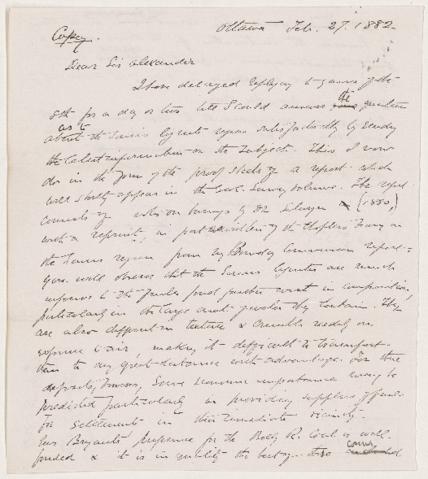 Copy.
Ottawa Feb. 27. 1882.
Dear Sir Alexander
I have delayed replying to yours of the
8th for a day or two till I could answer the question
as to
about the Souris lignite region satisfactorily by sending
the latest information on the subject. This I now
do in the form of the proof sheets of a report which
will shortly appear in the Geol. Survey volume. The report
consists of notes on borings by Dr Selwyn (1880)
with a reprint, in part of the Chapters bearing on
the Souris region from my Boundary Commission report.
You will observe that the Souris lignites are much
inferior to the in composition
particularly in the large amt. of water they contain. They
are also different in texture & crumble readily on
exposure to air making it difficult to transport
them to any great distance with advantage. For these
deposits, however, some economic importance may be
predicted particularly in providing supplies of fuel
for settlements in their immediate vicinity.
Bryants preference for the Belly R. Coal is well
founded & it is in quality the best